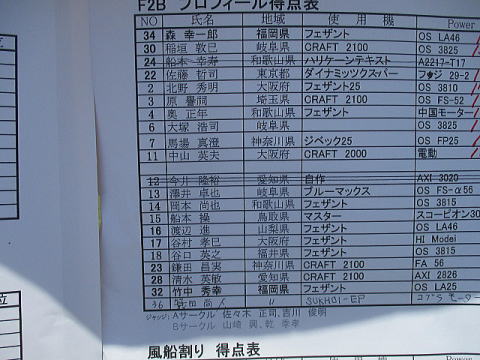 F2B プロフィール得点表
NO 氏名 地域 使用機 Power
34 森 幸一郎 福岡県 フェザント OS LA46
30 稲垣 敦巳 岐阜県 CRAFT 2100 OS 3825
24 船本 幸寿 和歌山県 ハリケーンテキスト A2217-T17
22 佐藤 哲司 東京都 ダイナミックスバー フジ 29-2
2 北野 秀明 大阪府 フェザント25 OS 3810
3 原 誉詞 埼玉県 CRAFT 2100 OS FS-52
4 奥 正年 和歌山県 フェザント 中国モーター
6 大塚 浩司 岐阜県 OS 3825
7 馬場 真澄 神奈川県 ジベック25 OS FP25
11 中山 英夫 大阪府 CRAFT 2000 電動
12 今井 隆裕 愛知県 自作 AXI 3020
13 澤井 卓也 岐阜県 ブルーマックス OS FS-α56
14 岡本 尚也 和歌山県 フェザント OS 3815
15 船本 操 鳥取県 マスター スコーピオン30
16 渡辺 進 山梨県 フェザント OS LA46
17 谷村 孝巳 大阪府 フェザント HI Model
18 谷口 英之 福井県 フェザント OS 3815
23 鎌田 昌実 神奈川県 CRAFT 2100 FA 56
28 清水 英敏 愛知県 CRAFT 2100 AXI 2826
32 竹中 秀幸 福岡県 フェザント OS LA25
36 〃 SUKHOI-EP コブラ モーター
ジャッジ; Aサークル 佐々木 正司、吉川 俊明
Bサークル 山崎 興、乾 幸孝
風船割り 得点表
位